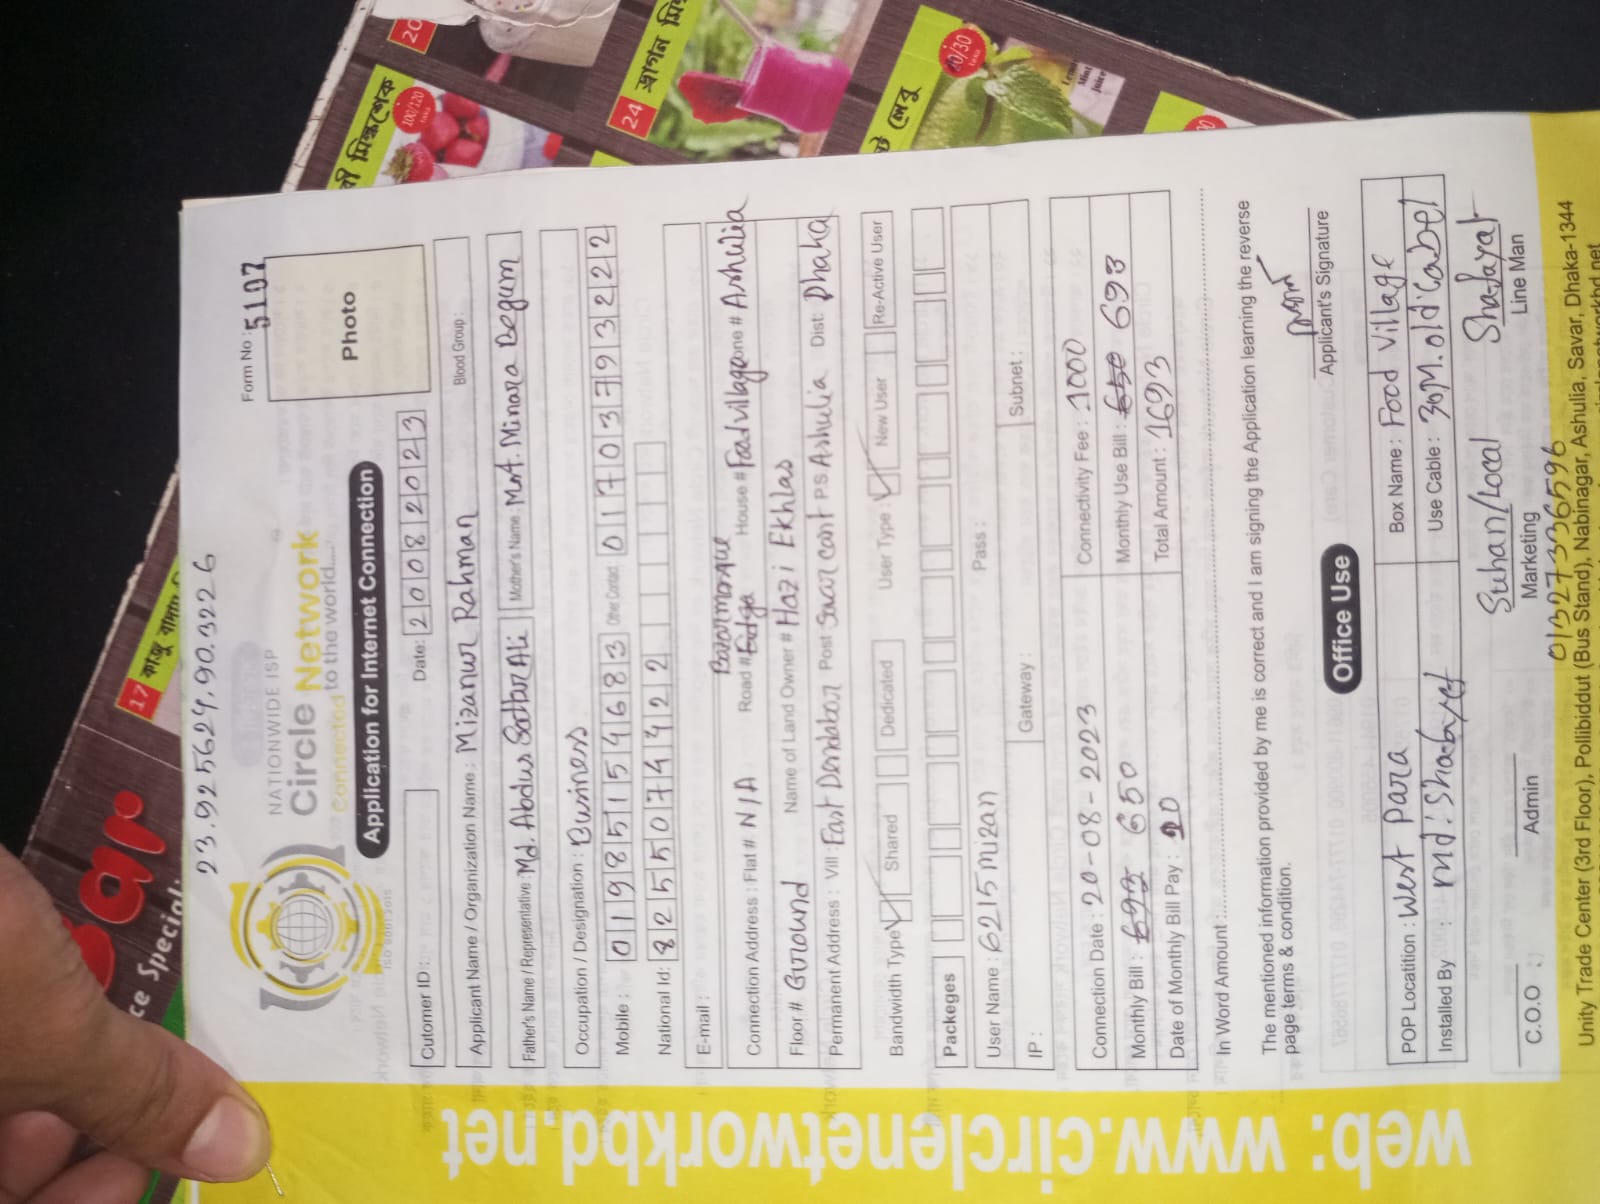 23.925624,90.3226
Form No : 5107
NATIONWIDE ISP
Circle Network
Connected to the world....
Photo
Application for Internet Connection
Cutomer ID : Date: 20082023
Applicant Name / Organization Name : Mizanur Rahman Blood Group :
Father's Name / Representative : Md. Abdus Sattar Ali Mother's Name : Mst. Minara Begum
Occupation / Designation : Business
Mobile : 01985154683 Other Contact 01703793222
National Id: 8255074422
E-mail :
Connection Address : Flat # N/A Road # Eidga Bazarmosque House # Foodvillage Zone # Ashulia
Floor # Ground Name of Land Owner # Hazi Ekhlas
Permanent Address : Vill : East Dendabor Post Savar cant P.S Ashulia Dist: Dhaka
Bandwidth Type Shared Dedicated User Type : New User Re-Active User
Packeges
User Name : 6215mizan Pass :
IP : Gateway : Subnet :
Connection Date : 20-08-2023 Connectivity Fee : 1000
Monthly Bill : 693 650 Monthly Use Bill : 650 693
Date of Monthly Bill Pay : 20 Total Amount : 1693
In Word Amount :
The mentioned information provided by me is correct and I am signing the Application learning the reverse
page terms & condition.
Applicant's Signature
Office Use
POP Locatition : West Para Box Name : Food Village
Installed By : md: Shafayet Use Cable : 30M.old Cabel
Suhan/Local Shafayat
C.O.O Admin Marketing Line Man
01327336596
Unity Trade Center (3rd Floor), Pollibiddut (Bus Stand), Nabinagar, Ashulia, Savar, Dhaka-1344
web: www.circlenetworkbd.net
17 কাজু বাদাম
মিল্কশেক
100/120
24 ড্রাগন
লেবু
20/30
Mint
Juice